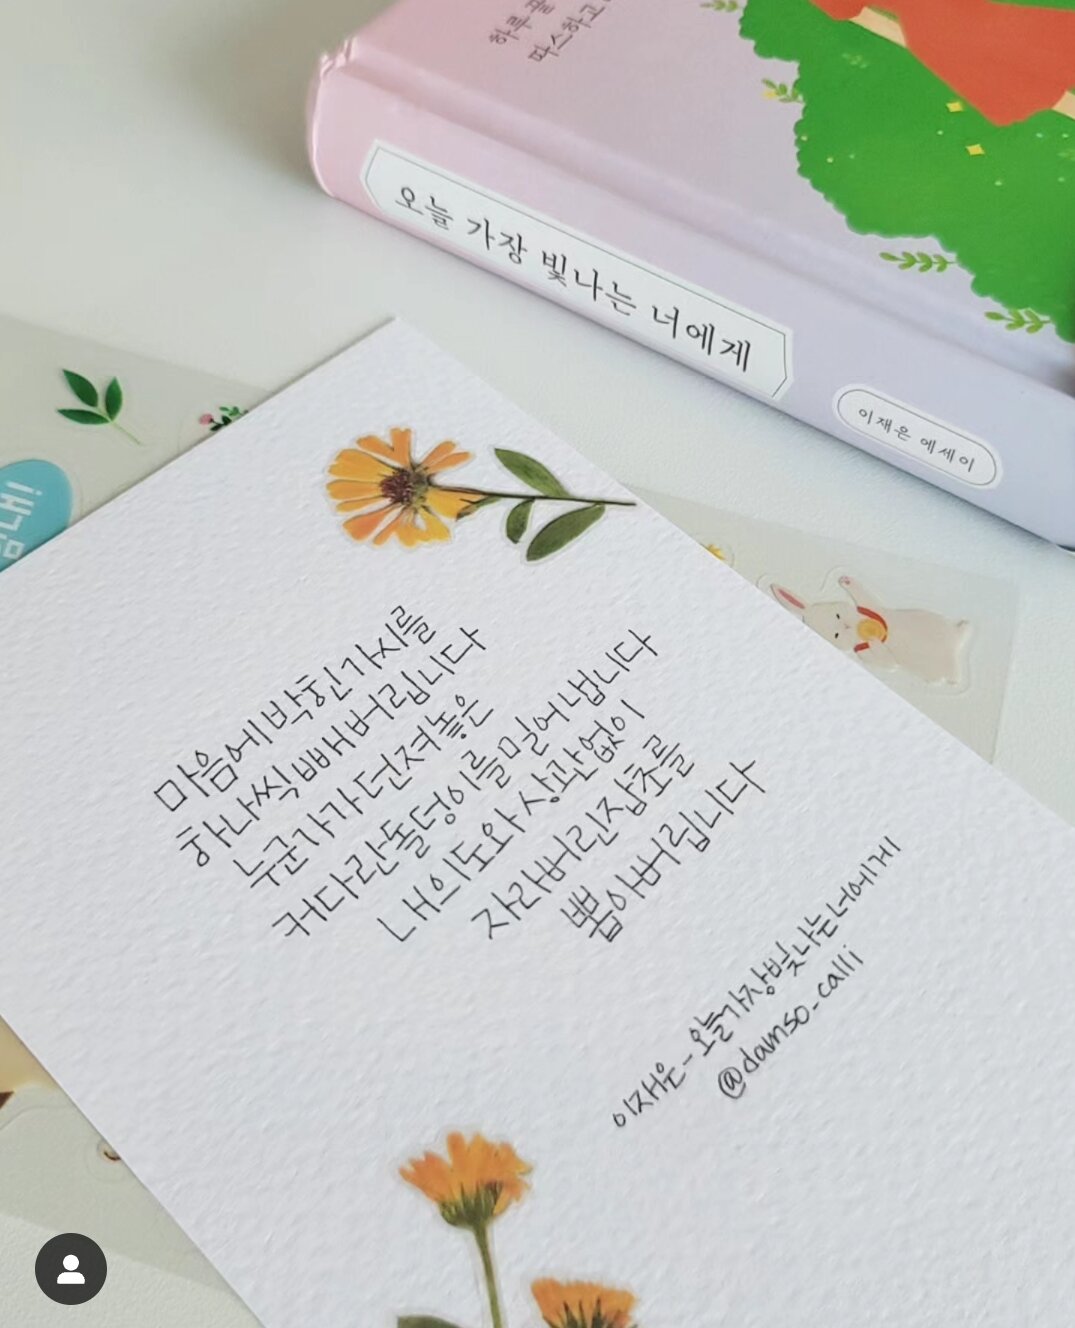 하루를
따스하고
오늘 가장 빛나는 너에게
이재은 에세이
마음에 박힌 가시를
하나씩 빼버립니다
누군가가 던져놓은
커다란 돌덩이를 밀어냅니다
내 의도와 상관없이
자라버린 잡초를
뽑아버립니다
이재은 - 오늘 가장 빛나는 너에게
@damso_calli